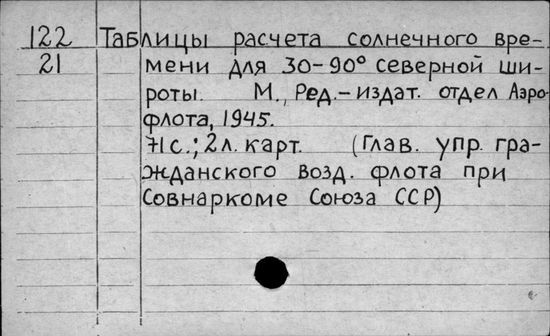 122 Таблицы расчета солнечного вре-
21 мени для 30-90° северной ши-
роты. М., Ред.-издат. отдел Аэро-
флота, 1945.
71с.; 2л. карт. (Глав. упр. гра-
жданского возд. флота при
Совнаркоме Союза ССР)